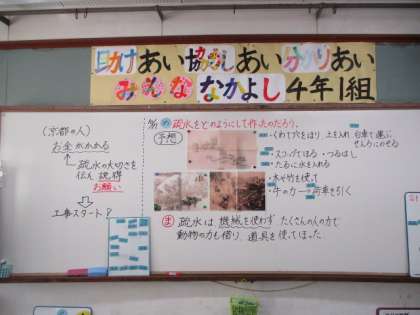 助けあい協力しあいかかりあい
みんななかよし4年1組
(京都の人)
お金がかかる
疏水の大切さを
伝え説得
お願い
工事スタート?
疏水をどのようにして作ったのだろう。
予想
・くわで穴をほり 土を入れ 台車で運ぶ
せんろにのせる
・スコップでほる ・つるはし
・たるに水を入れる
・木や竹を使て
・牛の力 → 荷車を引く
ま 疏水は 機械を使わず たくさんの人の力で
動物の力も借り 道具を使て作った